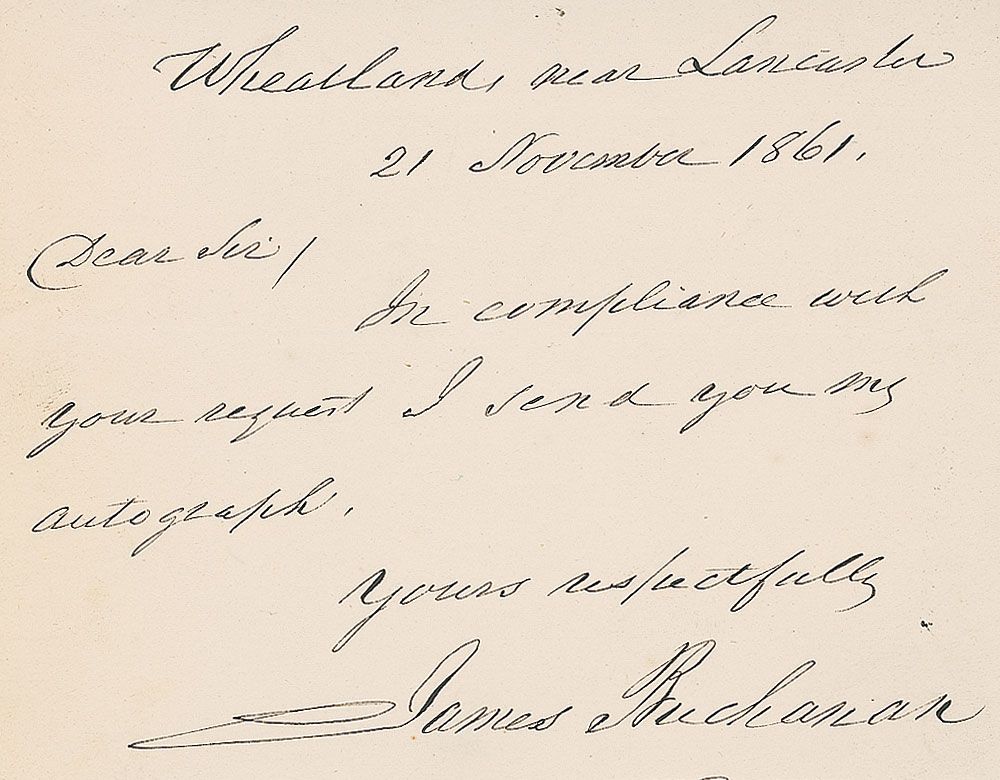 Wheatland, near Lancaster
21 November 1861.
Dear Sir,
In compliance with
your request I send you my
autograph.
Yours respectfully
James Buchanan